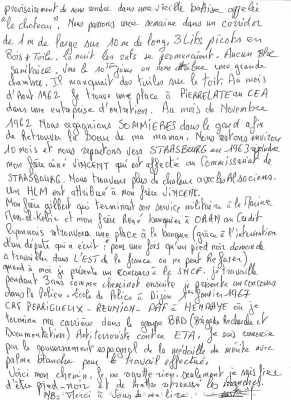 provisoirement de nous rendre dans une vieille batisse appelée
"le chateau". Nous passons une semaine dans un corridor
de 1 m de large sur 10 m de long, 3 lits picots en
Bois + Toile. La nuit les rats se promenaient. Aucun Bloc
Sanitaire. Vers le 10e jour on nous attribue une grande
chambre. Il manquait des tuiles sur le toit. Au mois
d'Aout 1962 je trouve une place à PIERRELATE au CEA
dans une entreprise d'                . Au mois de Novembre
1962 Nous rejoignons SOMMIERES dans le gard afin
de retrouver la soeur de ma maman. Nous restons environ
10 mois et nous repartons vers STRASBOURG en 1963
mon frère ainé VINCENT qui est affecté au Commissariat de
STRASBOURG. Nous trouvons plus de chaleur avec les Alsaciens.
Un HLM est attribué à mon frère VINCENT.
Mon frère gilbert qui terminait son service militaire à la Marine
Mers-el-Kebir et mon frère René banquier à ORAN au Crédit
Lyonnais retrouvera une place à la banque (grâce à l'intervention
d'un député qui a écrit : pour une fois qu'un pied noir demande
a travailler dans L'EST de la france on ne peut Refuser)
quant à moi je présente un concours à la SNCF. je travaille
pendant 3 ans comme cheminot ensuite je présente un concours
dans la Police - École de Police à Dijon 1er février 1967
CRS PERRIGUEUX - REUNION - PAF à HENDAYE où je
termine ma carrière dans le groupe BRD (Brigades Recherche et
Documentation) Antiterroriste contre ETA. Je suis remercié
par le gouvernement espagnol de la médaille du mérite avec
palme blanche pour le travail effectué.
Voici mon chemin. Je ne regrette rien. Seulement je suis fier
d'être pied-noir et de m'être retroussé les manches.
NB: Merci à vous de me lire.